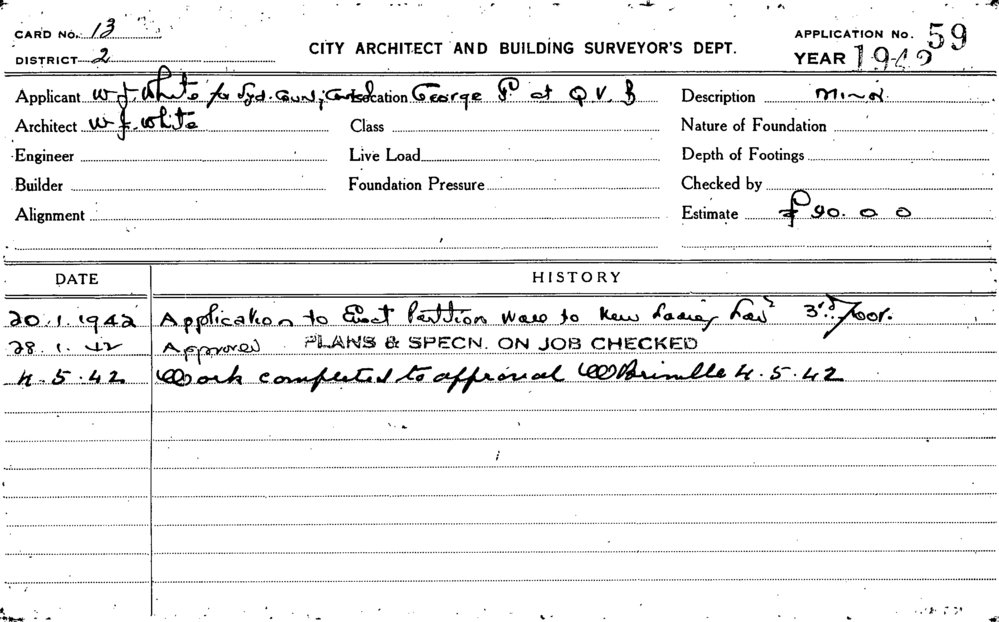 CARD No. 13
DISTRICT 2
CITY ARCHITECT AND BUILDING SURVEYOR'S DEPT.
APPLICATION No. 59
YEAR 1942
Applicant W. J. White for Syd. County Location George St at Q V. B Description Minor
Architect W J. White Class Nature of Foundation
Engineer Live Load Depth of Footings
Builder Foundation Pressure Checked by
Alignment Estimate £ 90. 0 0
DATE HISTORY
20.1.1942 Application to Erect Partition Wall to New Ladies Lav 3rd floor.
28.1.42 Approved PLANS & SPECN. ON JOB CHECKED
4.5.42 Work completed to approval 4.5.42